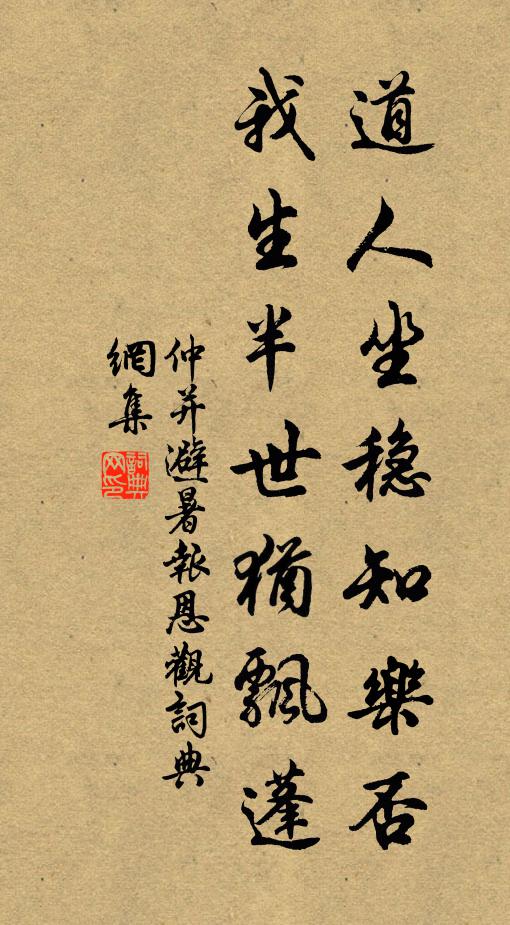 道人坐稳知樂否
我生半世猶飄蓬
仲并避暑報恩觀詞典
網集
詞典
网印